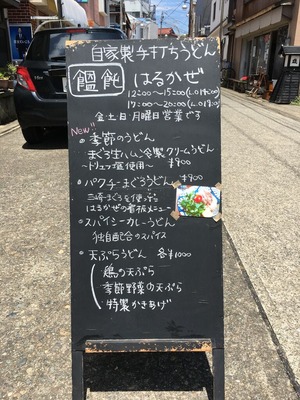 自家製手打ちうどん
饂飩 はるかぜ
12:00〜15:00(L.O14:30)
17:00〜20:00(L.O19:30)
金・土・日・月曜日営業です
New
季節のうどん
まぐろ生ハムの冷製クリームうどん
〜トリュフ塩使用〜 ¥900
パクチーまぐろうどん ¥900
三崎まぐろを使った
はるかぜの看板メニュー
スパイシーカレーうどん
独自配合のスパイス
天ぷらうどん 各¥1000
鶏の天ぷら
季節野菜の天ぷら
特製かきあげ